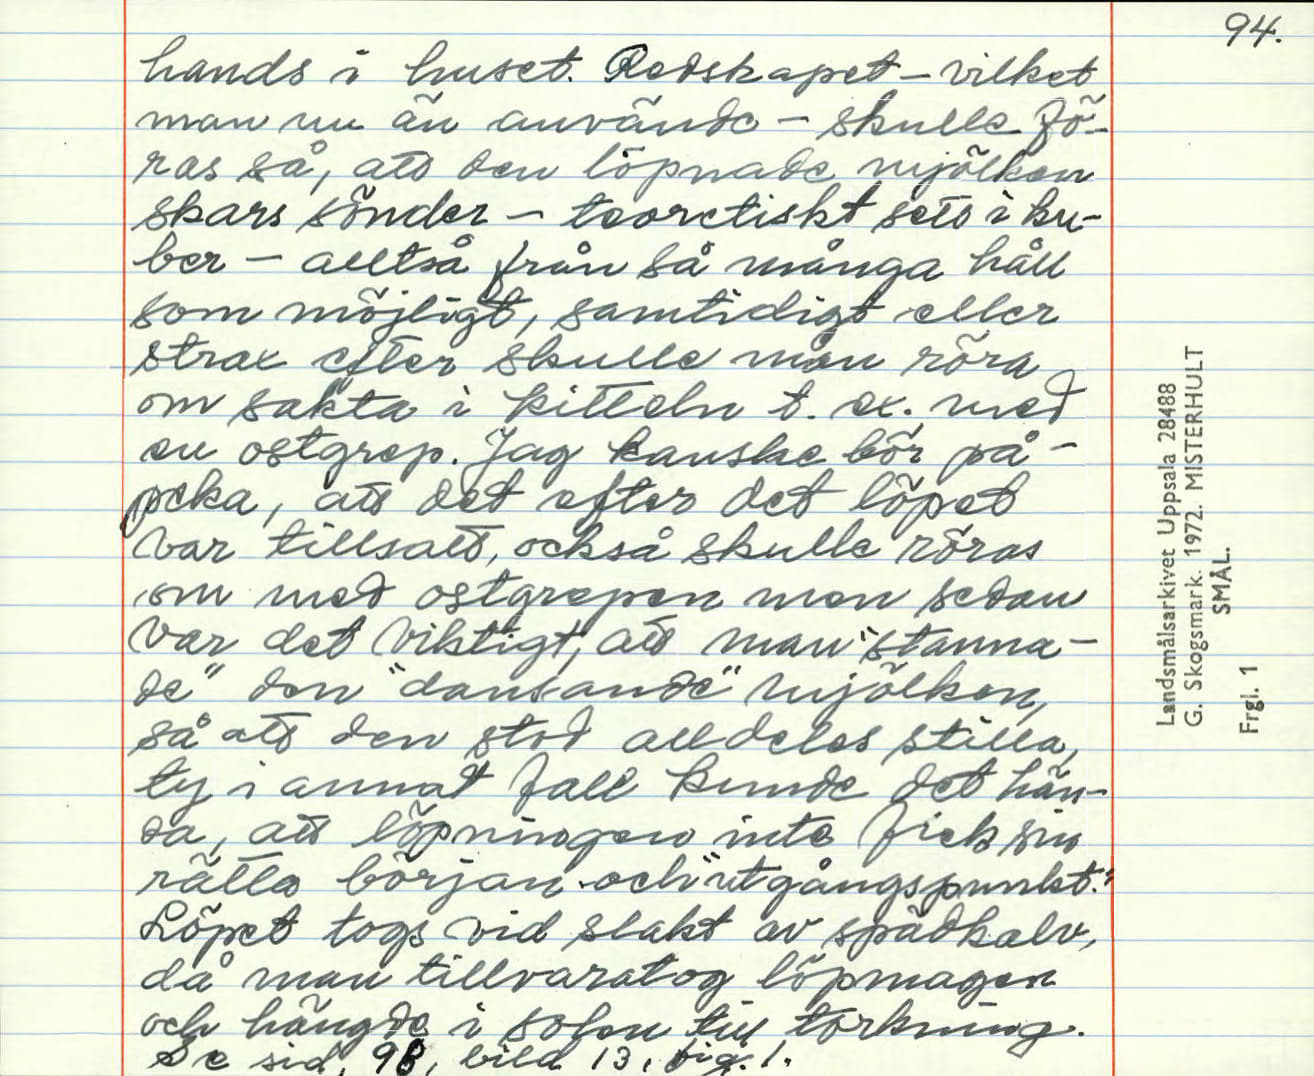 94.
hands i huset. Redskapet – vilket
man nu än använde – skulle fö-
ras så, att den löpnade mjölken
skars sönder – teoretiskt sett i ku-
ber – alltså från så många håll
som möjligt, samtidigt eller
strax efter skulle man röra
om sakta i kitteln t. ex. med
en ostgrep. Jag kanske bör på-
peka, att det efter det löpet
var tillsatt, också skulle röras
om med ostgrepen men sedan
var det viktigt, att man "stanna-
de" den "dansande" mjölken,
så att den stod alldeles stilla,
ty i annat fall kunde det hän-
da, att löpningen inte fick sin
rätta början och "utgångspunkt."
Löpet togs vid slakt av spädkalv,
då man tillvaratog löpmagen
och hängde i solen till torkning.
Se sid. 98, bild 13, fig. 1.
Landsmålsarkivet Uppsala 28488
G. Skogsmark. 1972. MISTERHULT
SMÅL.
Frgl. 1